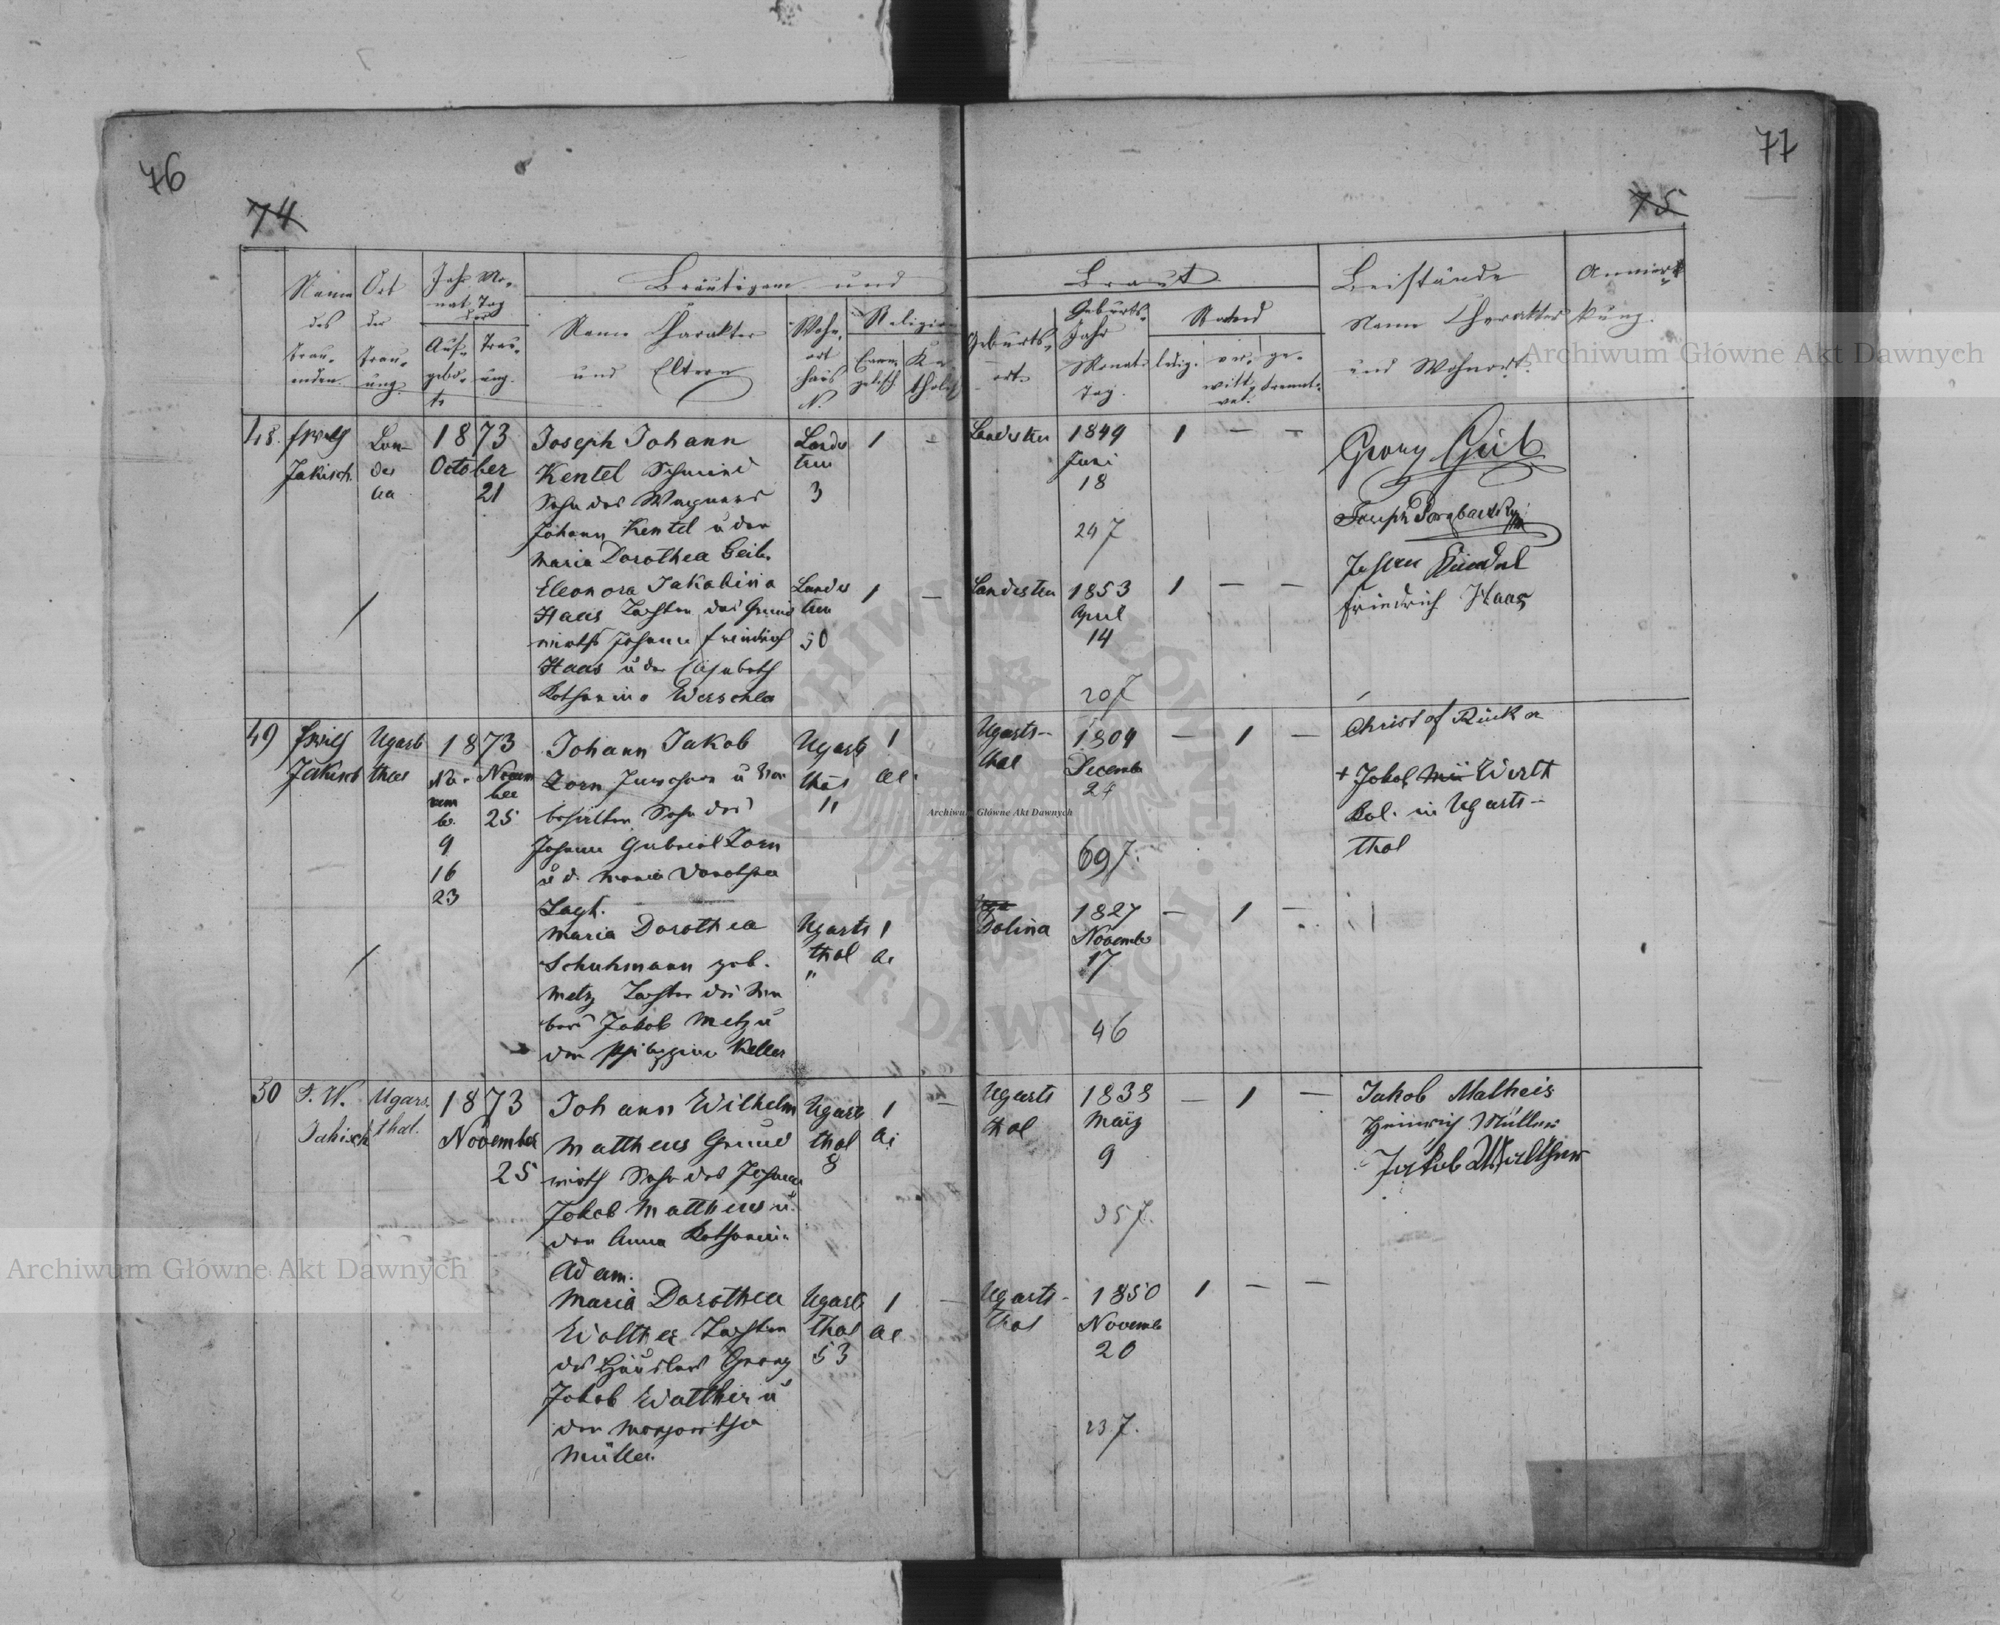 76
77
74
75
Name des Trauenden
Ort der Trauung
Jahr Monat Tag der
Aufgebote
Trauung
Bräutigam und
Braut
Name Charakter
und Eltern
Wohnort Haus N.
Religion
Evangelisch
Katholisch
Geburtsort
Geburts-
Jahr
Monat
Tag
Stand
ledig.
verwittwet
getrennt
Beistände
Name Charakter
und Wohnort.
Anmerkung.
48.
Jakisch
1873
October
21
Joseph Johann
Kentel Schmied
Sohn des Wagners
Johann Kentel u der
Maria Dorothea Geib.
Landes
treu
3
1 –
Landestreu
1849
Juni
18
24 J
1 – –
Georg Geib
Joseph
Johann
Friedrich Haas
Eleonora Jakobina
Haas Tochter des Grund
wirths Johann Friedrich
Haas u der Elisabeth
Katharina
Landes
treu
50
1 –
Landestreu
1853
April
14
20 J
1 – –
49
Jakisch
Ugarts
thal
1873
No-
vem
b.
9
16
23
Novem
ber
25
Johann Jakob
Zorn
Sohn des
Johann Gabriel Zorn
u d. Maria Dorothea
Ugarts
thal
"
1
Ugarts-
thal
1804
December
24
69 J.
– 1 –
Christof Rinker
+ Jakob Werth
Kol. in Ugarts-
thal
Maria Dorothea
Schuhmann geb.
Metz Tochter des
Jakob Metz u
der Philippine Keller
Ugarts
thal
"
1
Dolina
1827
November
17
46
– 1 –
50
F. W.
Jakisch
Ugarts
thal.
1873
November
25
Johann Wilhelm
Mattheus Grund
wirth Sohn des Johann
Jakob Mattheus u.
der Anna Katharina
Adam.
Ugarts
thal
8
1 –
Ugarts
thal
1838
März
9
35 J.
– 1 –
Jakob Matheis
Heinrich Müller
Jakob Walther
Maria Dorothea
Walther Tochter
des Häuslers Georg
Jakob Walther u
der Margaretha
Müller.
Ugarts
thal
53
1 –
Ugarts-
thal
1850
November
20
23 J.
1 – –
Archiwum Główne Akt Dawnych
Archiwum Główne Akt Dawnych
Archiwum Główne Akt Dawnych